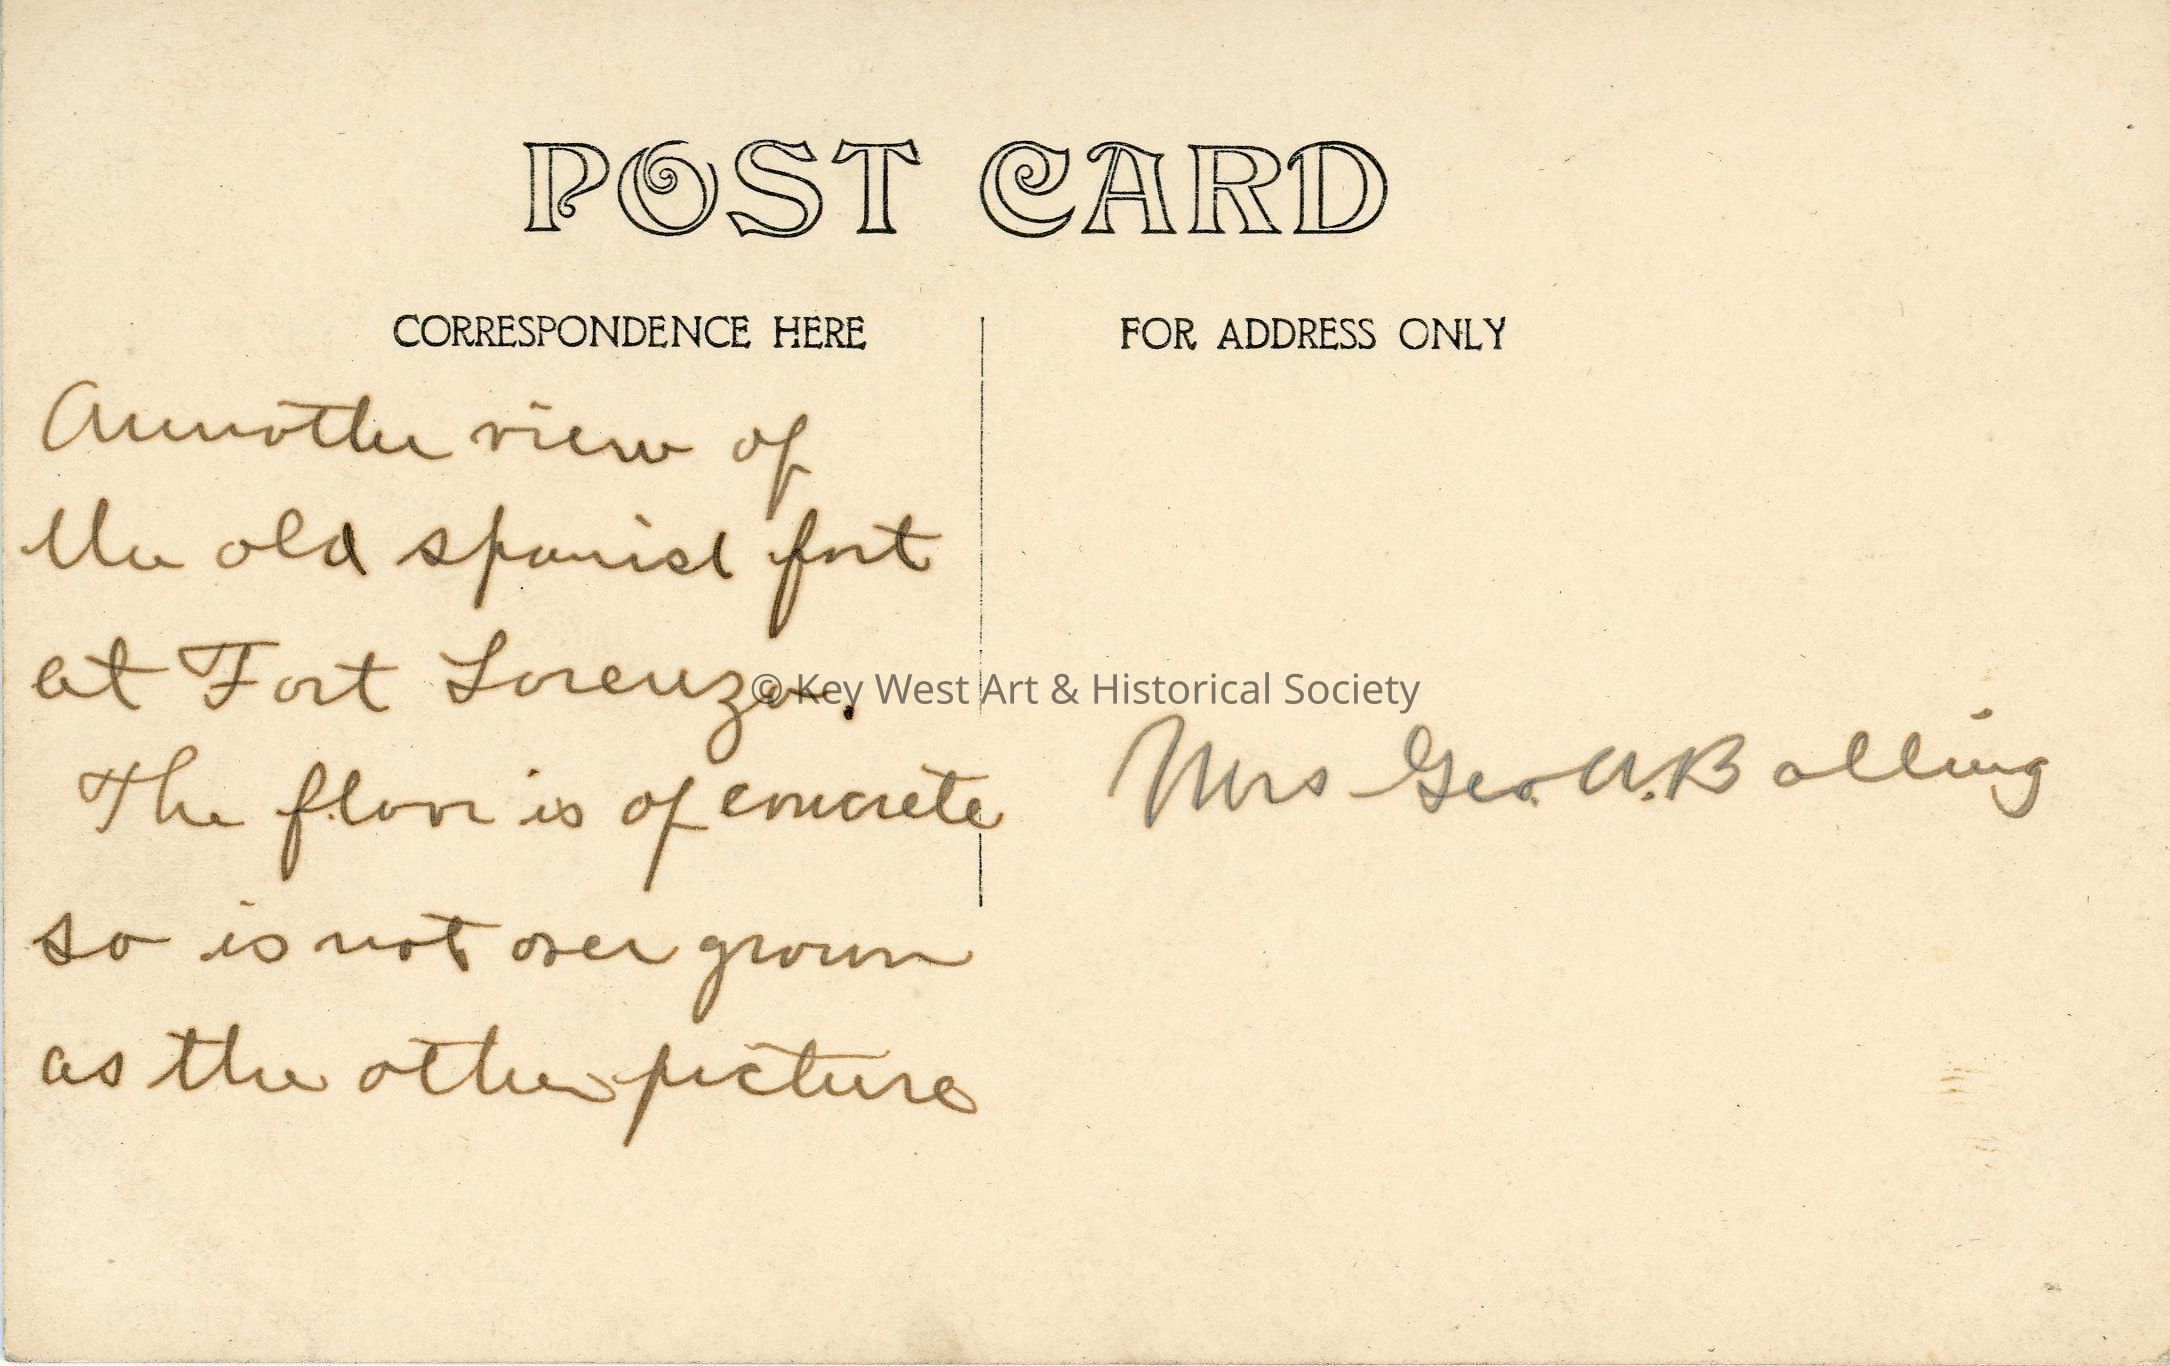 POST CARD
CORRESPONDENCE HERE
FOR ADDRESS ONLY
Annother view of
the old spanish fort
at Fort Lorenzo.
The floor is of concrete
so is not over grown
as the other picture
© Key West Art & Historical Society
Mrs Geo. A. Bolling